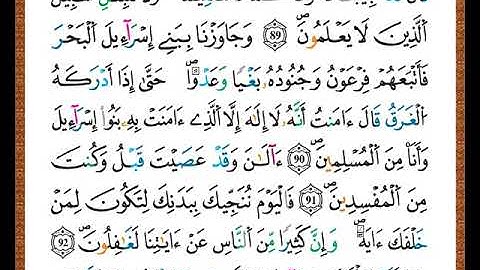 اَ۬لذِينَ لَا يَعْلَمُونَۖ 89 وَجَٰوَزْنَا بِبَنِےٓ إِسْرَآءِيلَ اَ۬لْبَحْرَ
فَأَتْبَعَهُمْ فِرْعَوْنُ وَجُنُودُهُۥ بَغْياٗ وَعَدْواًۖ حَتَّىٰٓ إِذَآ أَدْرَكَهُ
اُ۬لْغَرَقُ قَالَ ءَامَنتُ أَنَّهُۥ لَآ إِلَٰهَ إِلَّا اَ۬لذِےٓ ءَامَنَتْ بِهِۦ بَنُوٓاْ إِسْرَآءِيلَ
وَأَنَا مِنَ اَ۬لْمُسْلِمِينَۖ 90 ءَآلَٰنَ وَقَدْ عَصَيْتَ قَبْلُ وَكُنتَ
مِنَ اَ۬لْمُفْسِدِينَۖ 91 فَالْيَوْمَ نُنَجِّيكَ بِبَدَنِكَ لِتَكُونَ لِمَنْ
خَلْفَكَ ءَايَةٗۖ وَإِنَّ كَثِيراٗ مِّنَ اَ۬لنَّاسِ عَنْ ءَايَٰتِنَا لَغَٰفِلُونَۖ 92